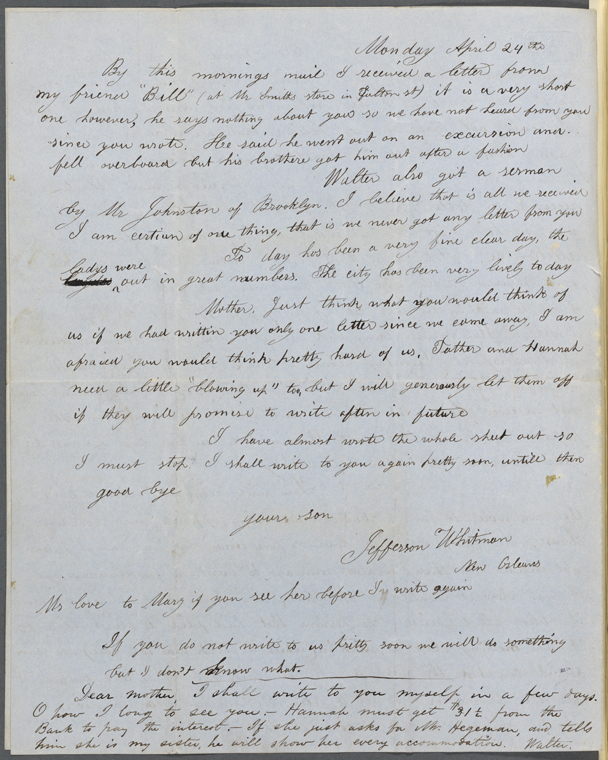 Monday April 24th
By this mornings mail I received a letter from
my friend "Bill" (at Mr Smiths store in Fulton st) it is a very short
one however, he says nothing about you so we have not heard from you
since you wrote. He said he went out on an excursion and
fell overboard but his brothere got him out after a fashion
Walter also got a serman
by Mr Johnston of Brooklyn. I believe that is all we received
I am certian of one thing, that is we never got any letter from you
To day has been a very fine clear day, the
ladys were
out in great numbers. The city has been very lively to day
Mother. Just think what you would think of
us if we had writtin you only one letter since we came away, I am
afraied you would think pretty hard of us. Father and Hannah
need a little "blowing up" too, but I will generously let them off
if they will promise to write often in future
I have almost wrote the whole sheet out so
I must stop. I shall write to you again pretty soon, untill then
good bye
your son
Jefferson Whitman
New Orleans
My love to Mary if you see her before I write again
If you do not write to us pretty soon we will do something
but I don't know what.
Dear mother, I shall write to you myself in a few days.
O how I long to see you.— Hannah must get $31½ from the
Bank to pay the interest.— If she just asks for Mr. Hegeman, and tells
him she is my sister, he will show her every accommodation. Walter.